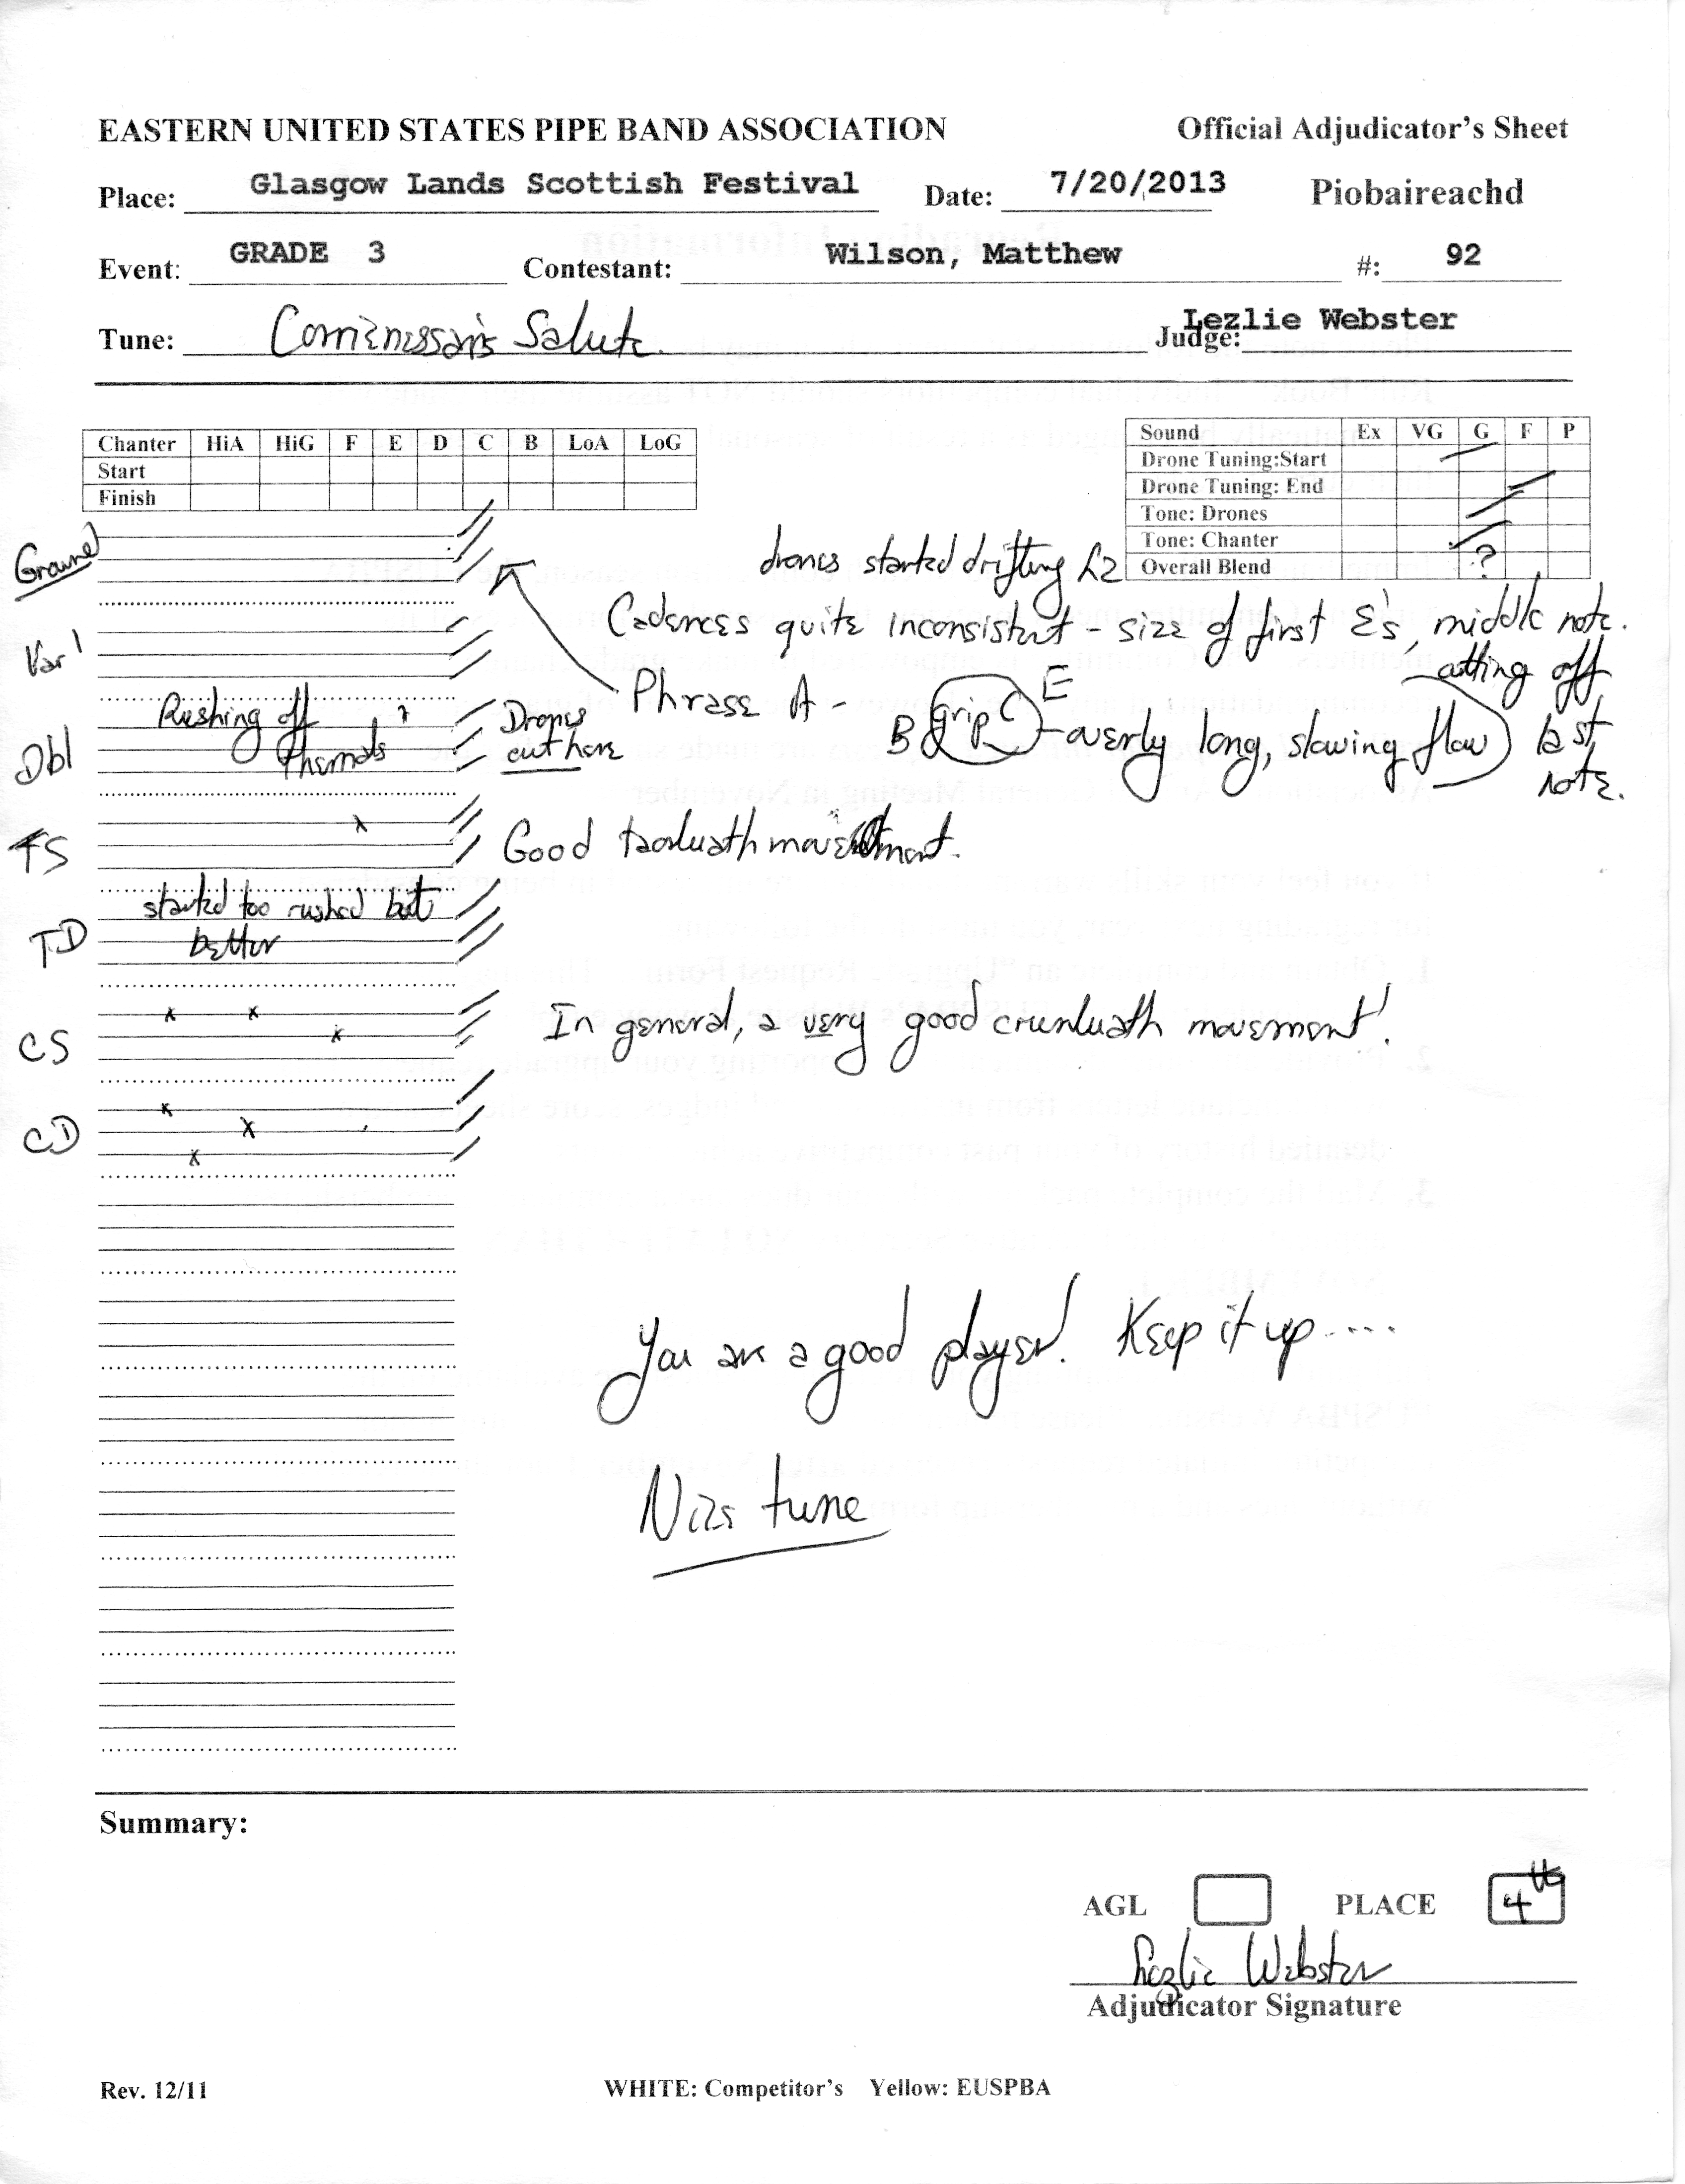 EASTERN UNITED STATES PIPE BAND ASSOCIATION Official Adjudicator's Sheet
Place: Glasgow Lands Scottish Festival Date: 7/20/2013 Piobaireachd
Event: GRADE 3 Contestant: Wilson, Matthew #: 92
Tune: Salute Judge: Lezlie Webster
Chanter HiA HiG F E D C B LoA LoG
Start
Finish
Sound Ex VG G F P
Drone Tuning:Start
Drone Tuning: End
Tone: Drones
Tone: Chanter
Overall Blend ?
Ground
drones started drifting L2
Cadences quite inconsistent - size of first E's, middle note.
cutting off last note.
Var 1
Phrase A - B grip C E - overly long, slowing flow
Dbl
Rushing off themals ?
Drones out here
TS
Good taorluath movement.
TD
started too rushed but better
CS
x x x
In general, a very good crunluath movement!
CD
x x x
You are a good player! Keep it up....
Nice tune
Summary:
AGL PLACE 4th
Lezlie Webster
Adjudicator Signature
Rev. 12/11 WHITE: Competitor's Yellow: EUSPBA